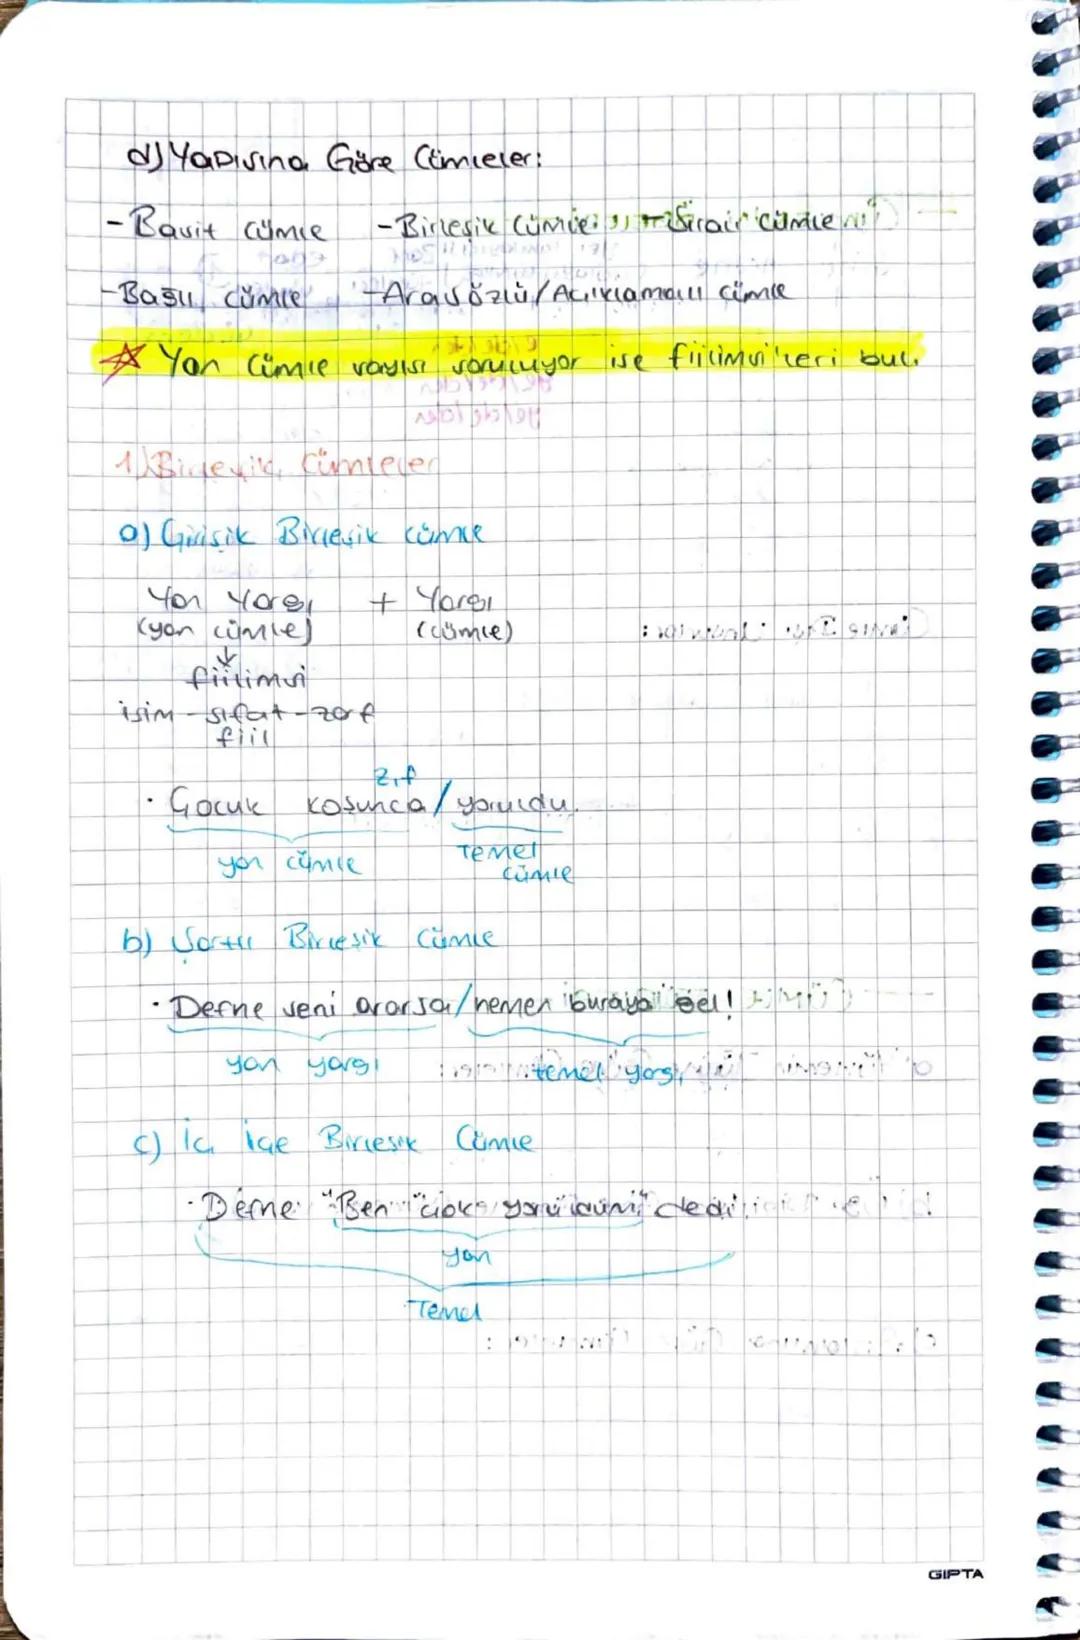 d) Yapısına Göre Cümleler:
- Basit Cümle - Birleşik Cümle - Sıralı Cümle
- Bağlı Cümle - Ara Sözlü/Açıklamalı Cümle
☆ Yan Cümle sayısı soruluyor ise fiilimsi'leri bul.
1) Birleşik Cümleler
a) Girişik Birleşik Cümle
Yan Yargı + Yargı
(yan cümle) (cümle)
↓
fiilimsi
isim - sıfat - zarf
fiil
z.f
· Çocuk koşunca / yoruldu.
yan cümle Temel
cümle
b) Şartlı Birleşik Cümle
· Defne seni ararsa / hemen buraya gel!
yan yargı temel yargı
c) İç İçe Birleşik Cümle
· Defne "Ben çok yoruldum" dedi.
yan
Temel
GIPTA